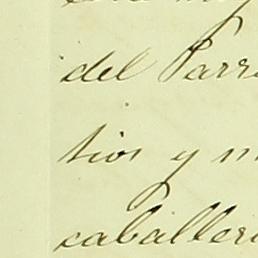 del Parr
tios y n
caballer